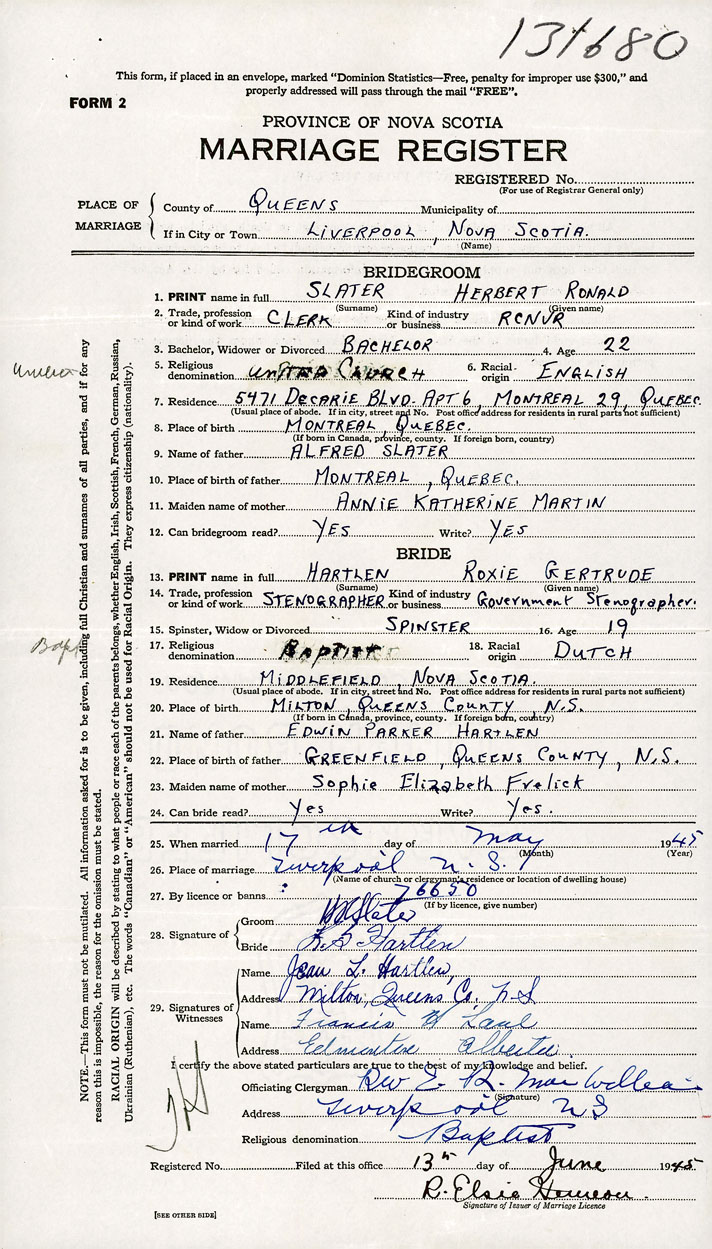 131680
This form, if placed in an envelope, marked “Dominion Statistics—Free, penalty for improper use $300,” and
properly addressed will pass through the mail “FREE”.
FORM 2
PROVINCE OF NOVA SCOTIA
MARRIAGE REGISTER
REGISTERED No.
(For use of Registrar General only)
PLACE OF MARRIAGE
County of QUEENS Municipality of
If in City or Town LIVERPOOL, NOVA SCOTIA.
(Name)
BRIDEGROOM
1. PRINT name in full SLATER HERBERT RONALD
(Surname) (Given name)
2. Trade, profession or kind of work CLERK Kind of industry or business RCNVR
3. Bachelor, Widower or Divorced BACHELOR 4. Age 22
5. Religious denomination UNITED CHURCH 6. Racial origin ENGLISH
7. Residence 5471 DECARIE BLVD. APT 6, MONTREAL 29, QUEBEC.
(Usual place of abode. If in city, street and No. Post office address for residents in rural parts not sufficient)
8. Place of birth MONTREAL, QUEBEC.
(If born in Canada, province, county. If foreign born, country)
9. Name of father ALFRED SLATER
10. Place of birth of father MONTREAL, QUEBEC.
11. Maiden name of mother ANNIE KATHERINE MARTIN
12. Can bridegroom read? YES Write? YES
BRIDE
13. PRINT name in full HARTLEN ROXIE GERTRUDE
(Surname) (Given name)
14. Trade, profession or kind of work STENOGRAPHER Kind of industry or business Government Stenographer.
15. Spinster, Widow or Divorced SPINSTER 16. Age 19
17. Religious denomination Baptist 18. Racial origin DUTCH
19. Residence MIDDLEFIELD, NOVA SCOTIA.
(Usual place of abode. If in city, street and No. Post office address for residents in rural parts not sufficient)
20. Place of birth MILTON, QUEENS COUNTY, N.S.
(If born in Canada, province, county. If foreign born, country)
21. Name of father EDWIN PARKER HARTLEN
22. Place of birth of father GREENFIELD, QUEENS COUNTY, N.S.
23. Maiden name of mother Sophie Elizabeth Frelick
24. Can bride read? Yes Write? Yes.
25. When married 17th day of May 1945
(Month) (Year)
26. Place of marriage Liverpool N.S.
(Name of church or clergyman's residence or location of dwelling house)
27. By licence or banns : 76650
(If by licence, give number)
28. Signature of
Groom HR Slater
Bride R.G Hartlen
29. Signatures of Witnesses
Name Jean L. Hartlen,
Address Milton, Queens Co. N S
Name Francis
Address Edmonton Alberta.
I certify the above stated particulars are true to the best of my knowledge and belief.
Officiating Clergyman Rev
(Signature)
Address Liverpool N S
Religious denomination Baptist
Registered No. Filed at this office 13th day of June 1945
R. Elsie
Signature of Issuer of Marriage Licence
[SEE OTHER SIDE]
NOTE.—This form must not be mutilated. All information asked for is to be given, including full Christian and surnames of all parties, and if for any
reason this is impossible, the reason for the omission must be stated.
RACIAL ORIGIN will be described by stating to what people or race each of the parents belongs, whether English, Irish, Scottish, French, German, Russian,
Ukrainian (Ruthenian), etc. The words “Canadian” or “American” should not be used for Racial Origin. They express citizenship (nationality).